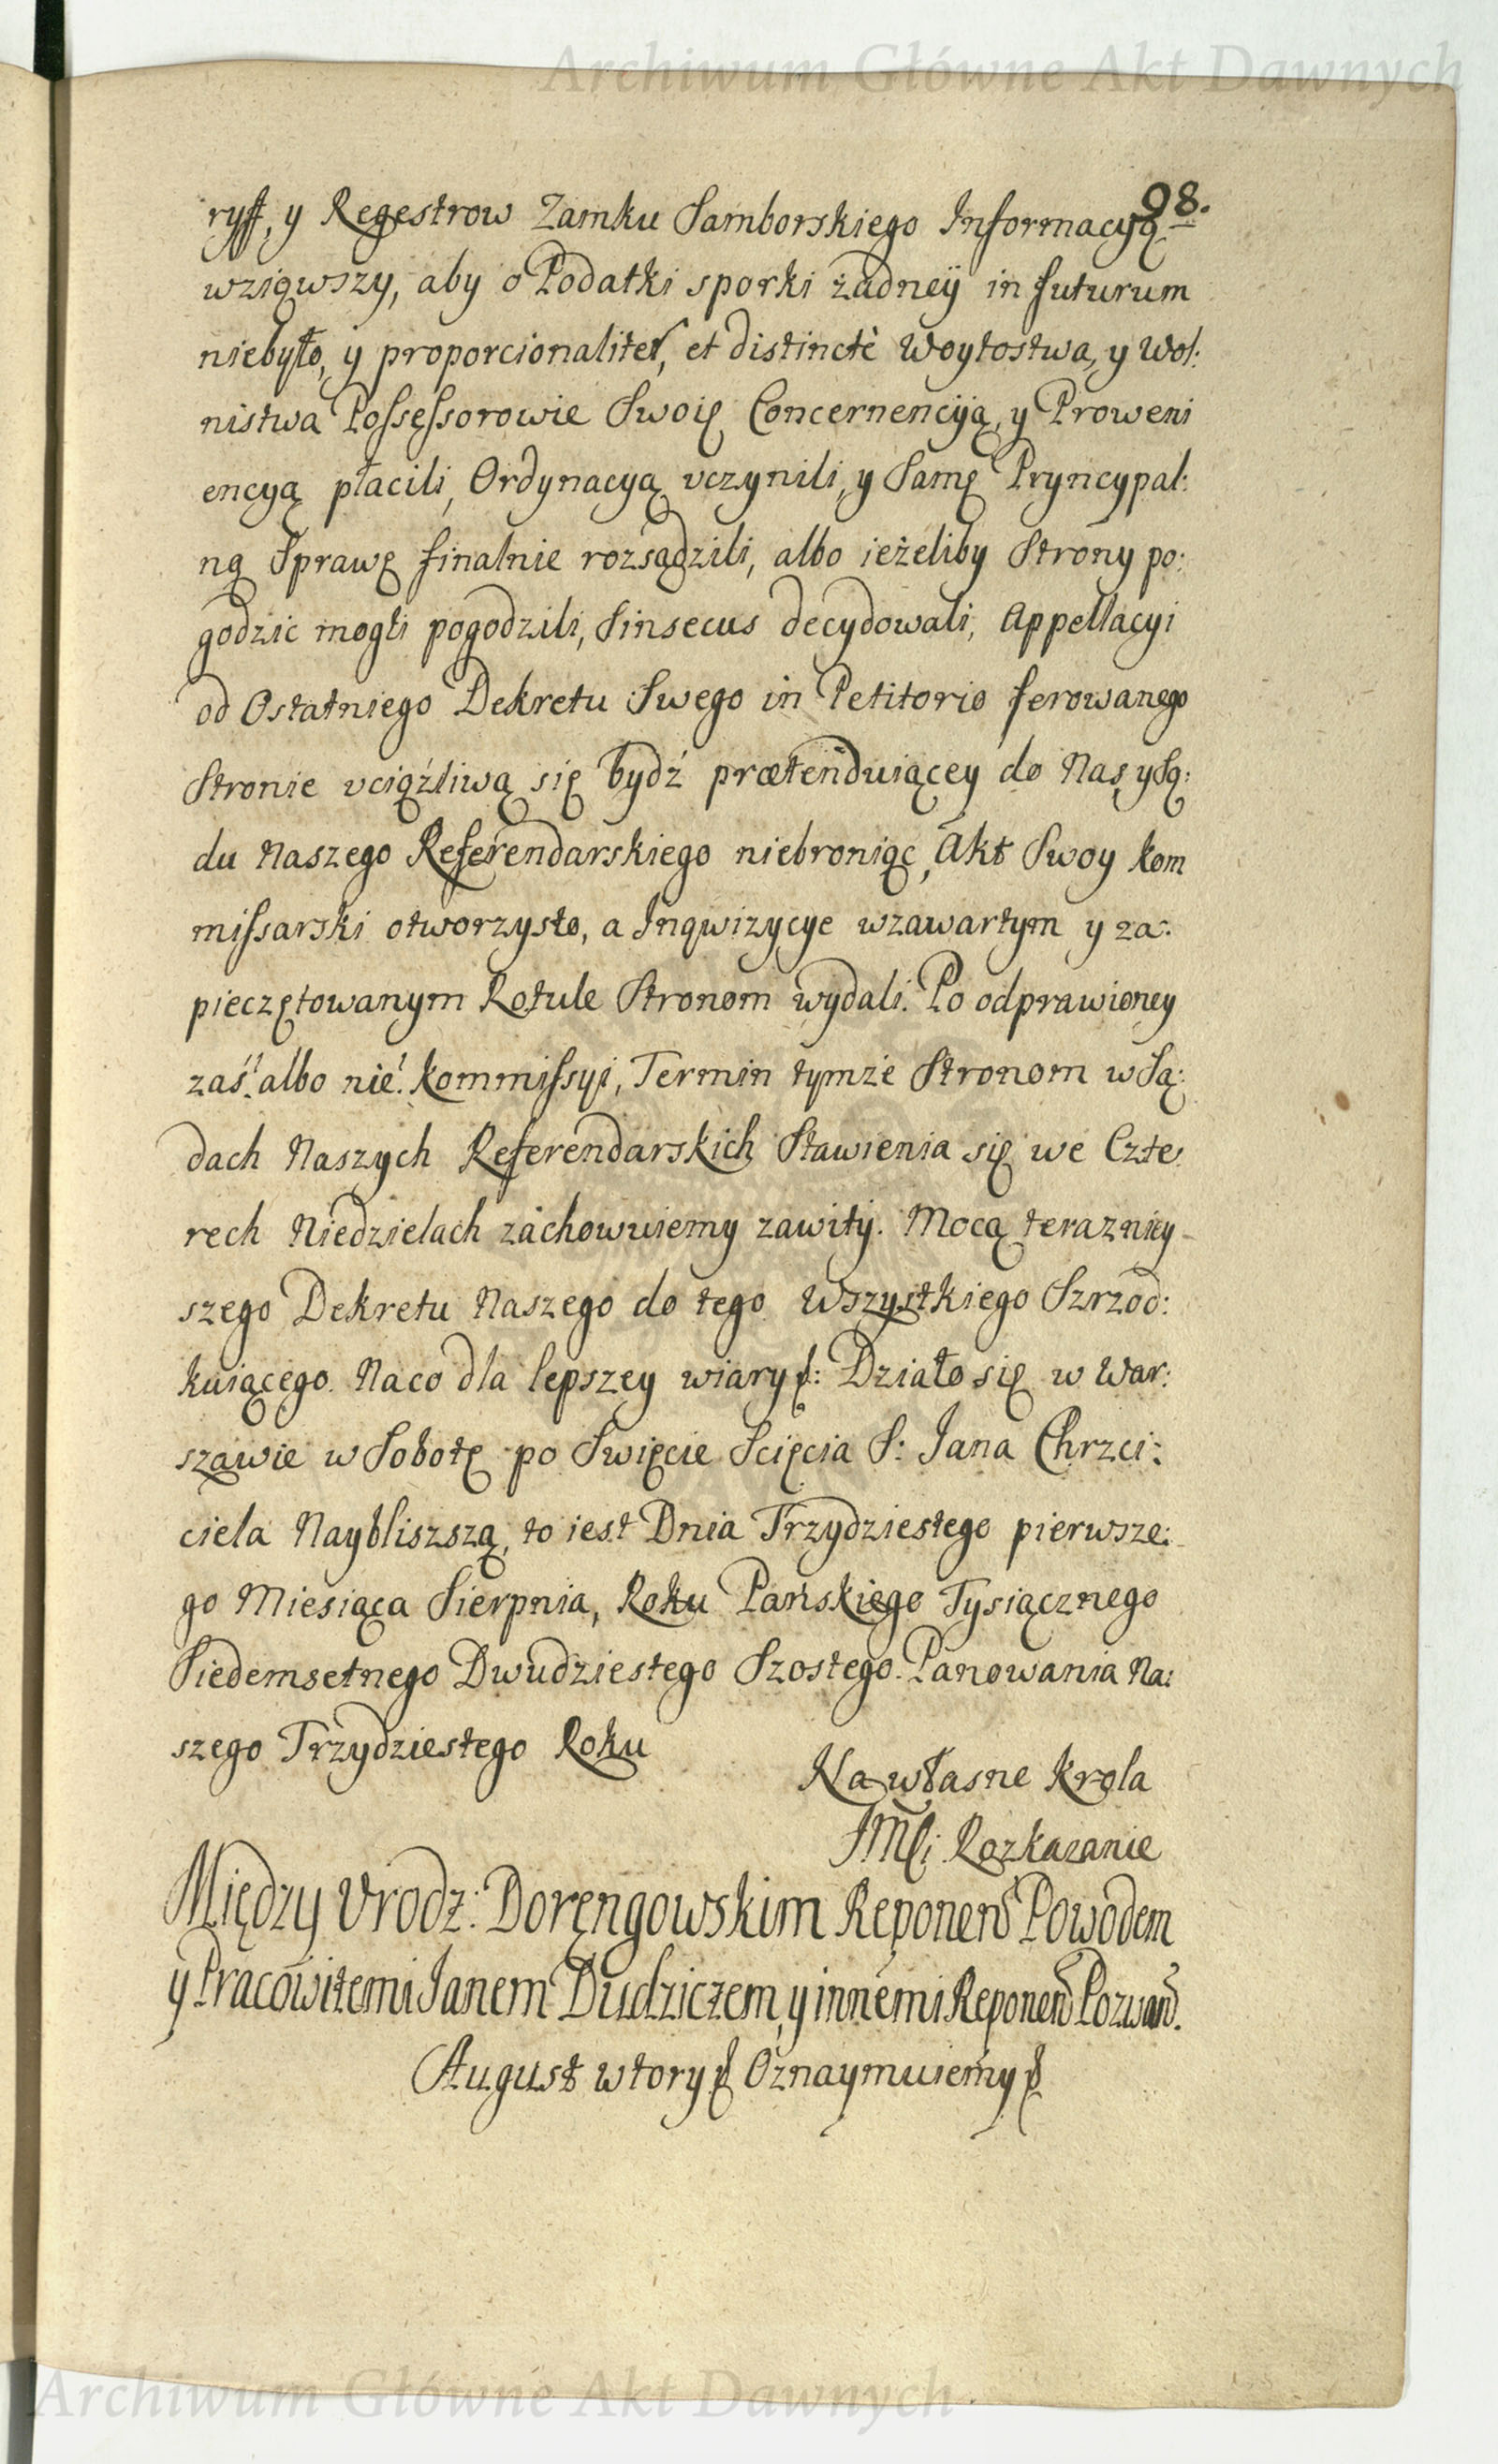 Archiwum Główne Akt Dawnych
98.
ryff, y Regestrow Zamku Samborskiego Informacyą
wziąwszy, aby o Podatki sporki żadney in futurum
niebyło, y proporcionaliter, et distinctè Woytostwa, y Wol:
nistwa Possessorowie Swoię Concernencyją, y Proweni
encyą płacili, Ordynacyą vczynili, y Samę Pryncypal:
ną Sprawę finalnie rozsądzili, albo ieżeliby Strony po:
godzic mogłi pogodzili, sinsecus decydowali, Appellacyi
od Ostatniego Dekretu Swego in Petitorio ferowanego
Stronie vciąźliwą się bydź prætenduiącey do Nas y Są:
du Naszego Referendarskiego niebroniąc, Akt Swoy kom
missarski otworzysto, a Inqwizycye wzawartym y za:
pieczętowanym Rotule Stronom wydali. Po odprawioney
zaś albo nie kommissyi, Termin tymże Stronom w Są:
dach Naszych Referendarskich Stawienia się we Czte:
rech Niedzielach záchowuiemy zawity. Mocą teraznięy-
szego Dekretu Naszego do tego Wszystkiego Szrzod:
kuiącego. Naco dla lepszey wiary p: Działo się w War:
szawie w Sobotę po Swięcie Scięcia S: Jana Chrzci:
ciela Naybliszszą, to iest Dnia Trzydziestego pierwsze:
go Miesiąca Sierpnia, Roku Pańskiego Tysiącznego
Siedemsetnego Dwudziestego Szostego. Panowania Na:
szego Trzydziestego Roku
Na własne Krola
JMsci Rozkazanie
Między Vrodz: Doręngowskim Reponen Powodem
y Pracowitemi Janem Dudziczem, y innemi Reponen Pozwan.
August wtory p Oznaymuiemy p
Archiwum Główne Akt Dawnych